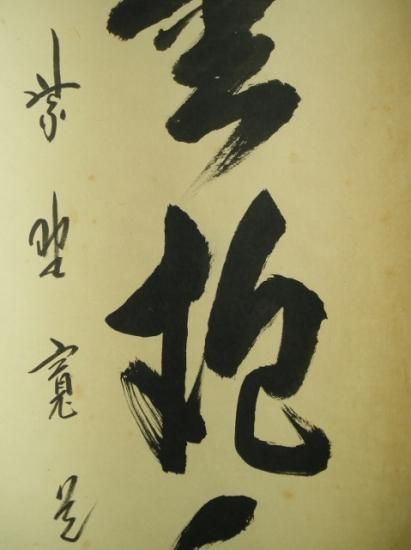 雲抱
紫野寛